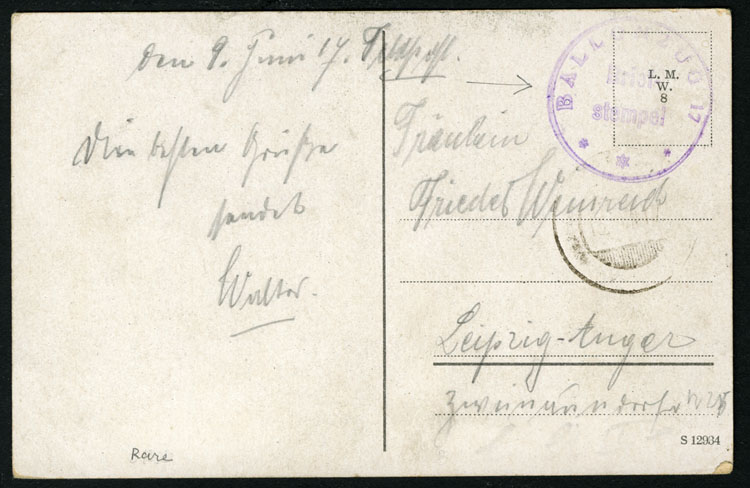 den 9. Juni 17. Feldpost.
Die besten Grüße
sendet
Walter.
Rare
BALLONZUG 17
Brief
stempel
L. M.
W.
8
Fräulein
Friedel Weinreich
Leipzig-Anger
Zweinaundorfer
S 12934